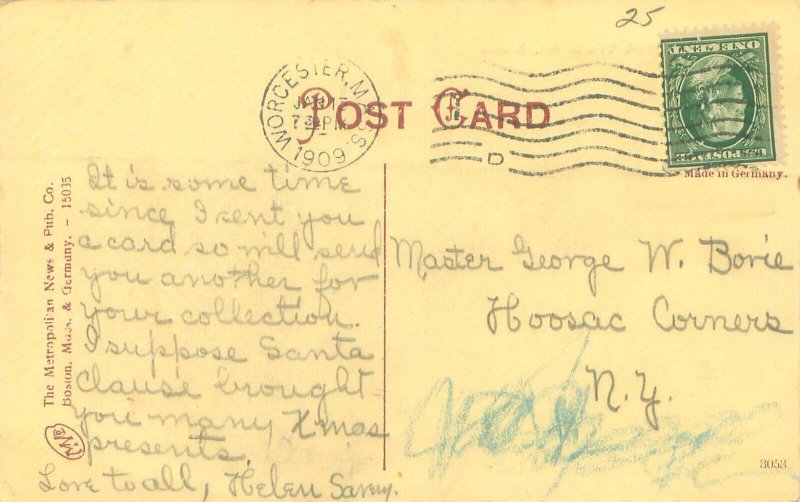 25
WORCESTER, MASS.
JAN 1
7 30 PM
1909
D
POST CARD
U.S. POSTAGE
ONE CENT
Made in Germany.
It is some time
since I sent you
a card so will send
you another for
your collection.
I suppose Santa
Clause brought
you many Xmas
presents.
Love to all, Helen
Master George W. Borie
Hoosac Corners
N.Y.
The Metropolitan News & Pub. Co.
Boston, Mass. & Germany. - 15035
3053